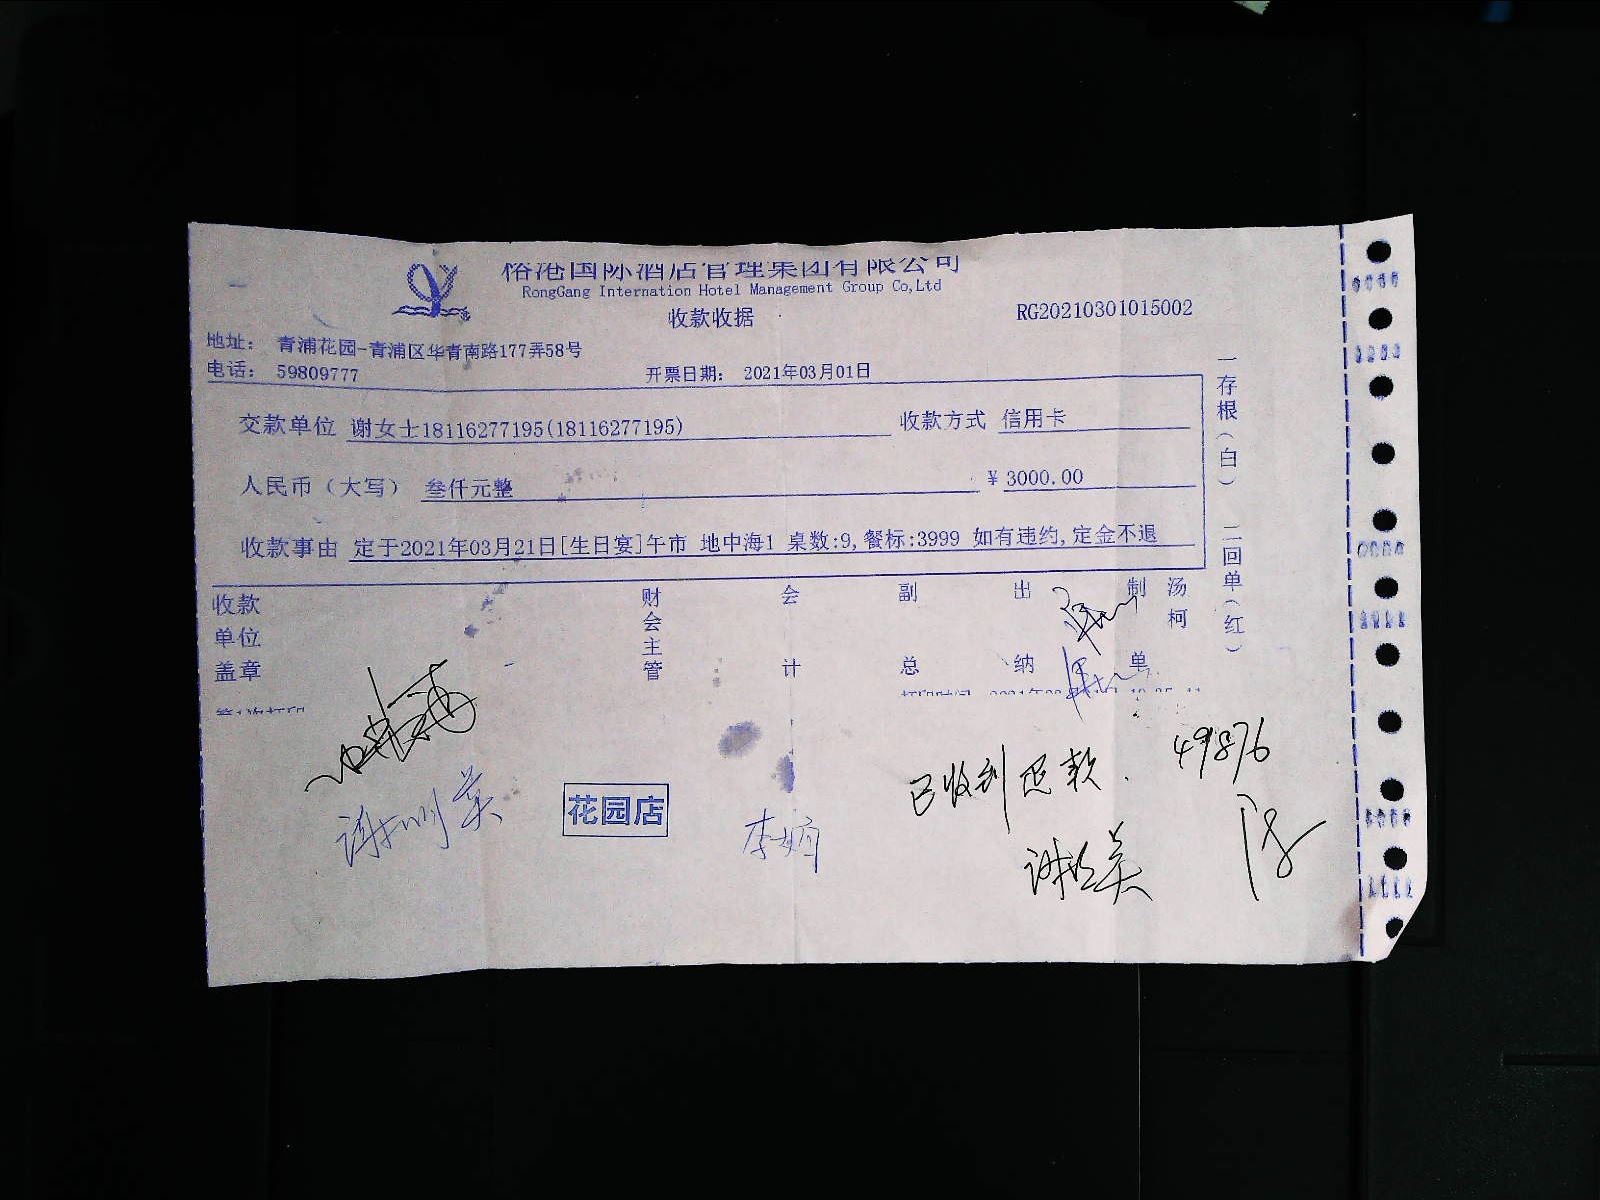 榕港国际酒店管理集团有限公司
RongGang Internation Hotel Management Group Co,Ltd
收款收据
RG20210301015002
地址： 青浦花园-青浦区华青南路177弄58号
电话： 59809777
开票日期： 2021年03月01日
交款单位 谢女士18116277195(18116277195)
收款方式 信用卡
人民币（大写） 叁仟元整
¥ 3000.00
收款事由 定于2021年03月21日[生日宴]午市 地中海1 桌数:9,餐标:3999 如有违约,定金不退
一存根(白) 二回单(红)
收款单位盖章
财会主管
会计
副总
出纳
制单
汤柯
第1次打印
49876
已收到退款.
花园店
李娟